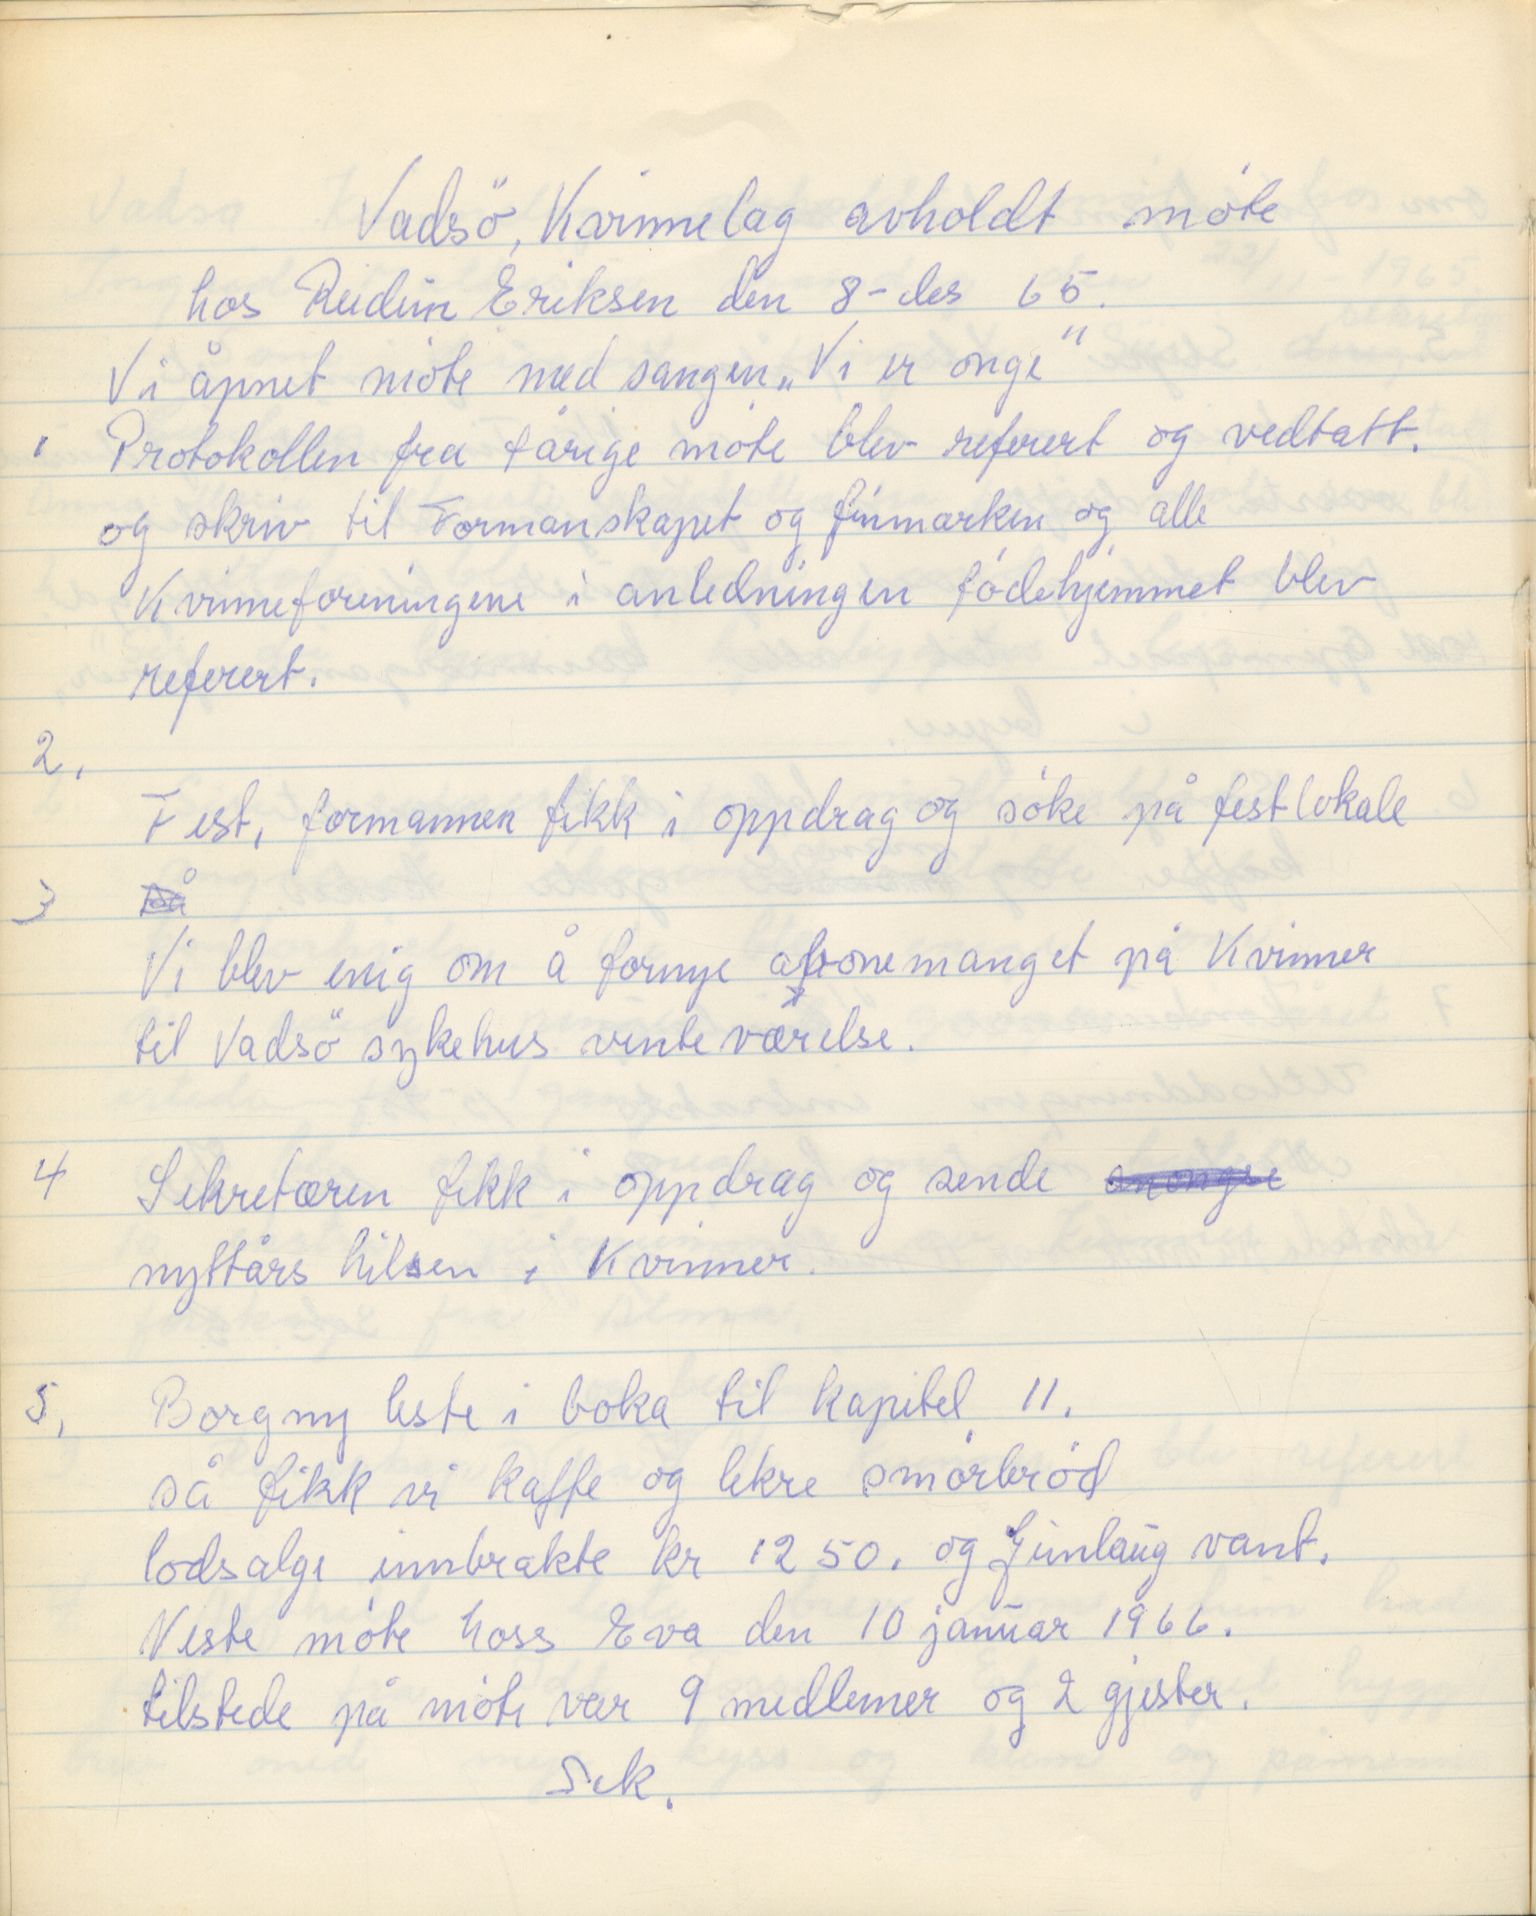 Vadsö, Kvinnelag avholdt möte
hos Reidun Eriksen den 8-des 65.
Vi åpnet möte med sangen „Vi er onge"
1 Protokollen fra förige möte blev referert og vedtatt.
og skriv til Formanskapet og finmarken og alle
Kvinneforeningene i anledningen födehjemmet blev
referert.
2.
Fest, formannen fikk i oppdrag og söke på festlokale
3
Vi blev enig om å fornye abonemanget på Kvinner
til Vadsö sykehus venteværelse.
4 Sekretæren fikk i oppdrag og sende
nyttårs hilsen i Kvinner.
5, Borgny leste i boka til kapitel 11.
så fikk vi kaffe og lekre smörbröd
lodsalge innbrakte kr 12 50. og Gunlaug vant.
Neste möte hoss Eva den 10 januar 1966.
tilstede på möte var 9 medlemer og 2 gjester.
Sek.